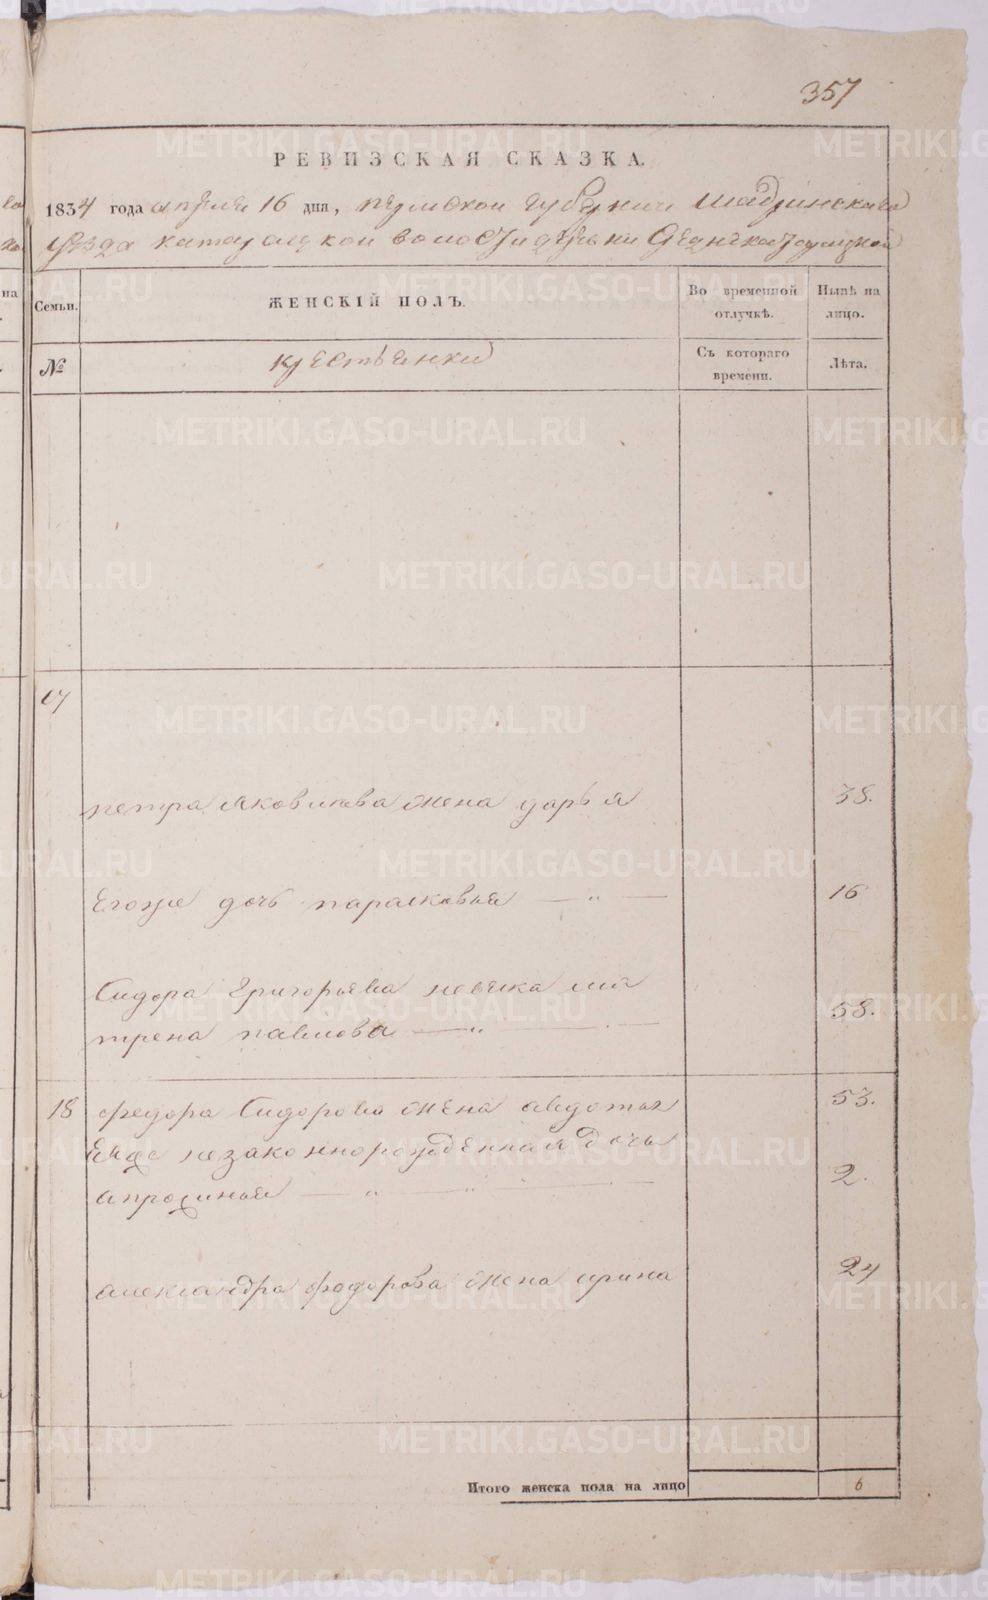 357
РЕВИЗСКАЯ СКАЗКА.
1834 года апреля 16 дня, пермской губернии шадринскаго
уезда катайской волости деревни
Семьи.
ЖЕНСКІЙ ПОЛЪ.
Во временной отлучкѣ.
Нынѣ на лицо.
№
крестьянки
Съ котораго времени.
Лѣта.
17
петра яковлева жена дарья 38.
Егоже дочь парасковья — „ — 16
Сидора Григорьева невѣска ма
трена павлова — „ — 58.
18 федора Сидорова жена авдотья 53.
Еяже незаконнорожденная дочь
апросинья — „ — „ — 2.
александра федорова жена ирина 24
Итого женска пола на лицо 6
METRIKI.GASO-URAL.RU